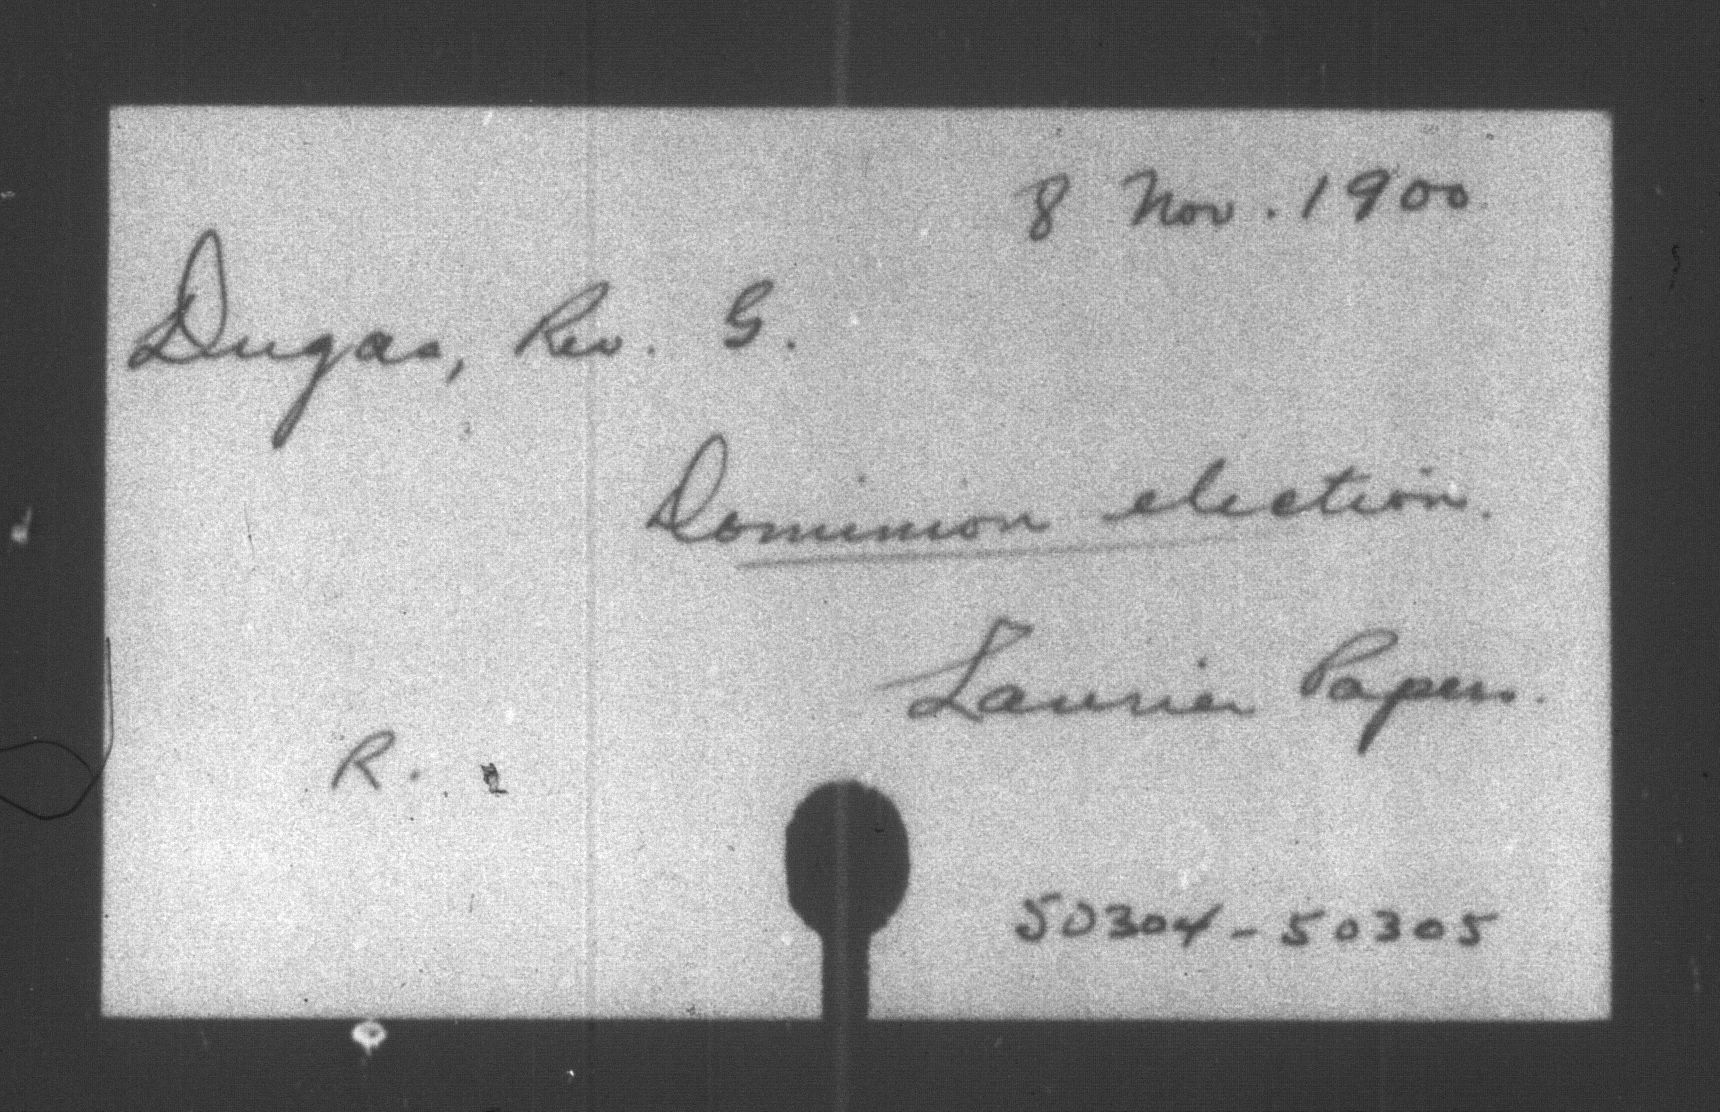 8 Nov. 1900
Dugas, Rev. G.
Dominion election.
Laurier Papers.
R.
50304-50305